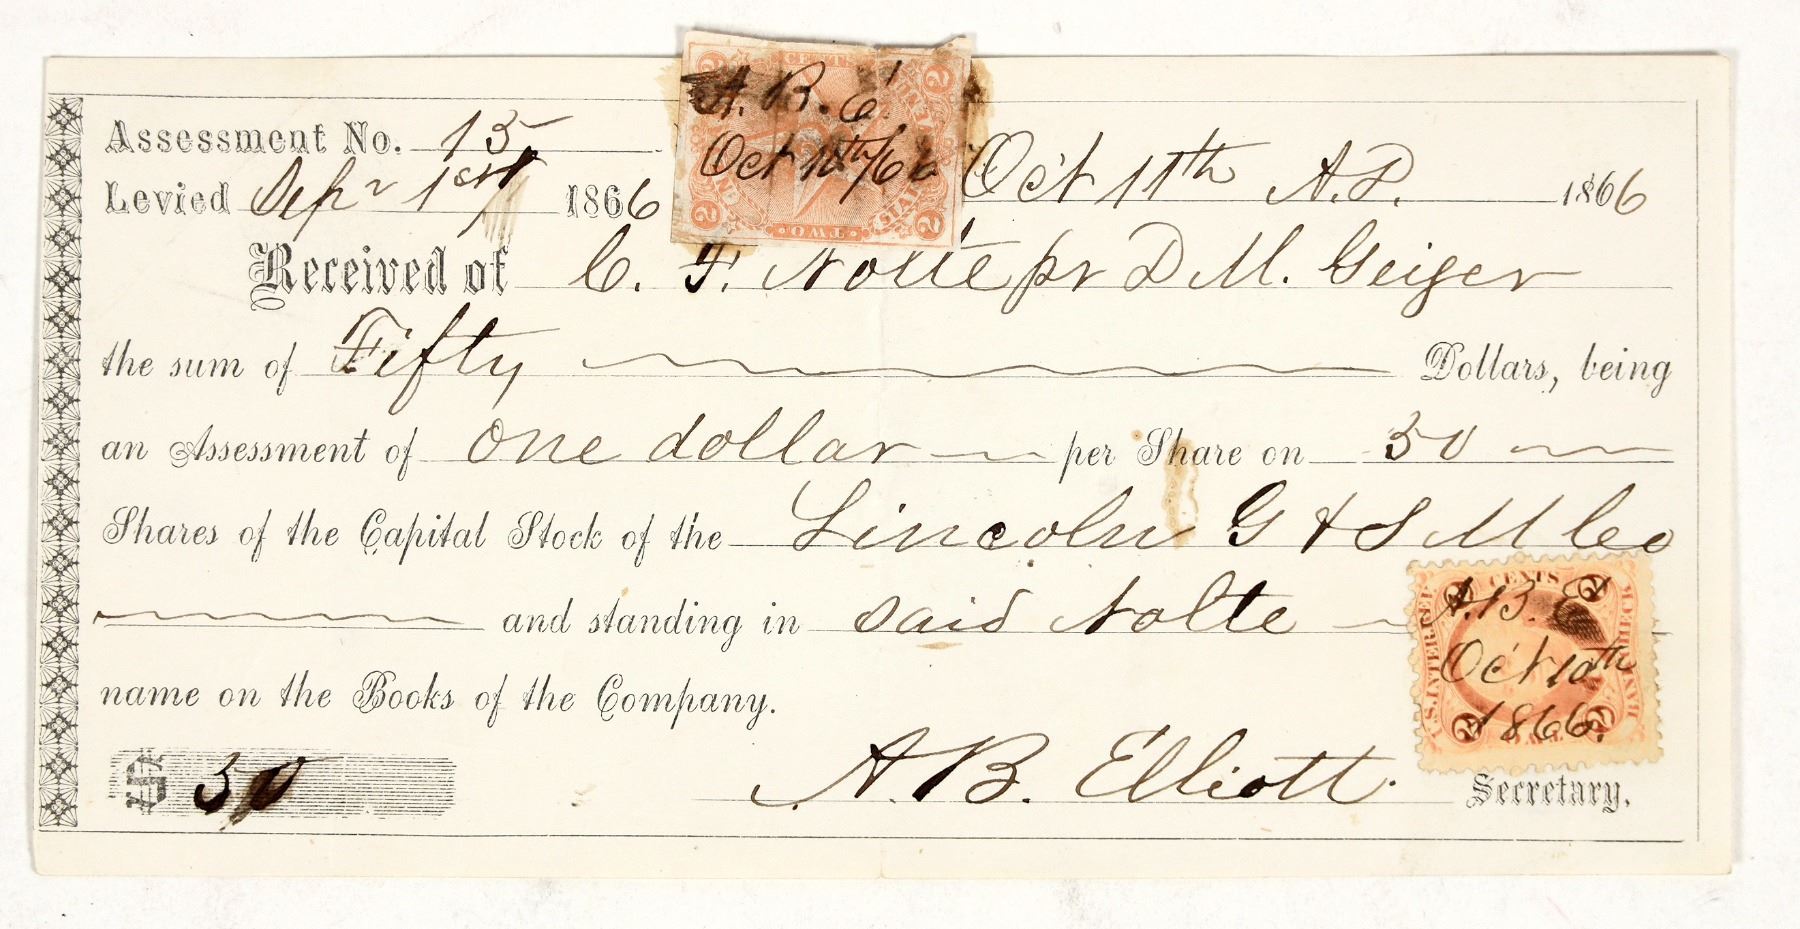 Assessment No. 13
Levied Sepr 1st 1866
Oct 11th A.D. 1866
Received of C. F. Nolte pr D M. Geiger
the sum of Fifty Dollars, being
an Assessment of one dollar per Share on 50
Shares of the Capital Stock of the Lincoln G & S M Co
and standing in said Nolte
name on the Books of the Company.
$ 50
A. B. Elliott. Secretary.
CENTS
A. B. E.
Oct 10th/66
TWO
2 2 2 2
CENTS
A. B. E
Oct 10th
1866.
U.S. INTER REV.
BANK CHECK
2 2 2 2